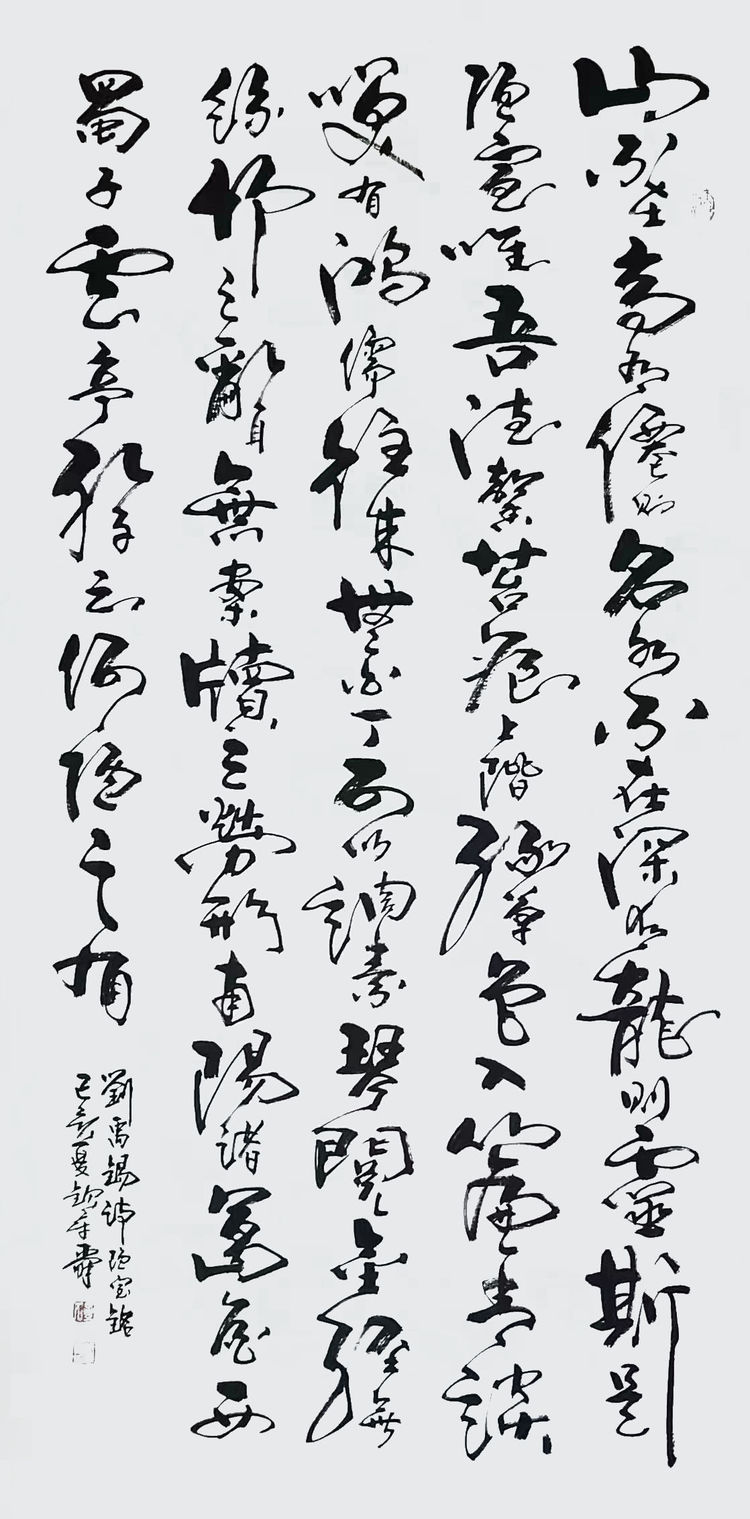 山不在高有僊則名水不在深有龍則靈斯是
陋室唯吾德馨苔痕上階緑草色入簾青談
咲有鴻儒往来無白丁可以調素琴閱金經無
絲竹之亂耳無案牘之勞形南陽諸葛廬西
蜀子雲亭孔子云何陋之有
劉禹錫詩陋室銘
己亥夏